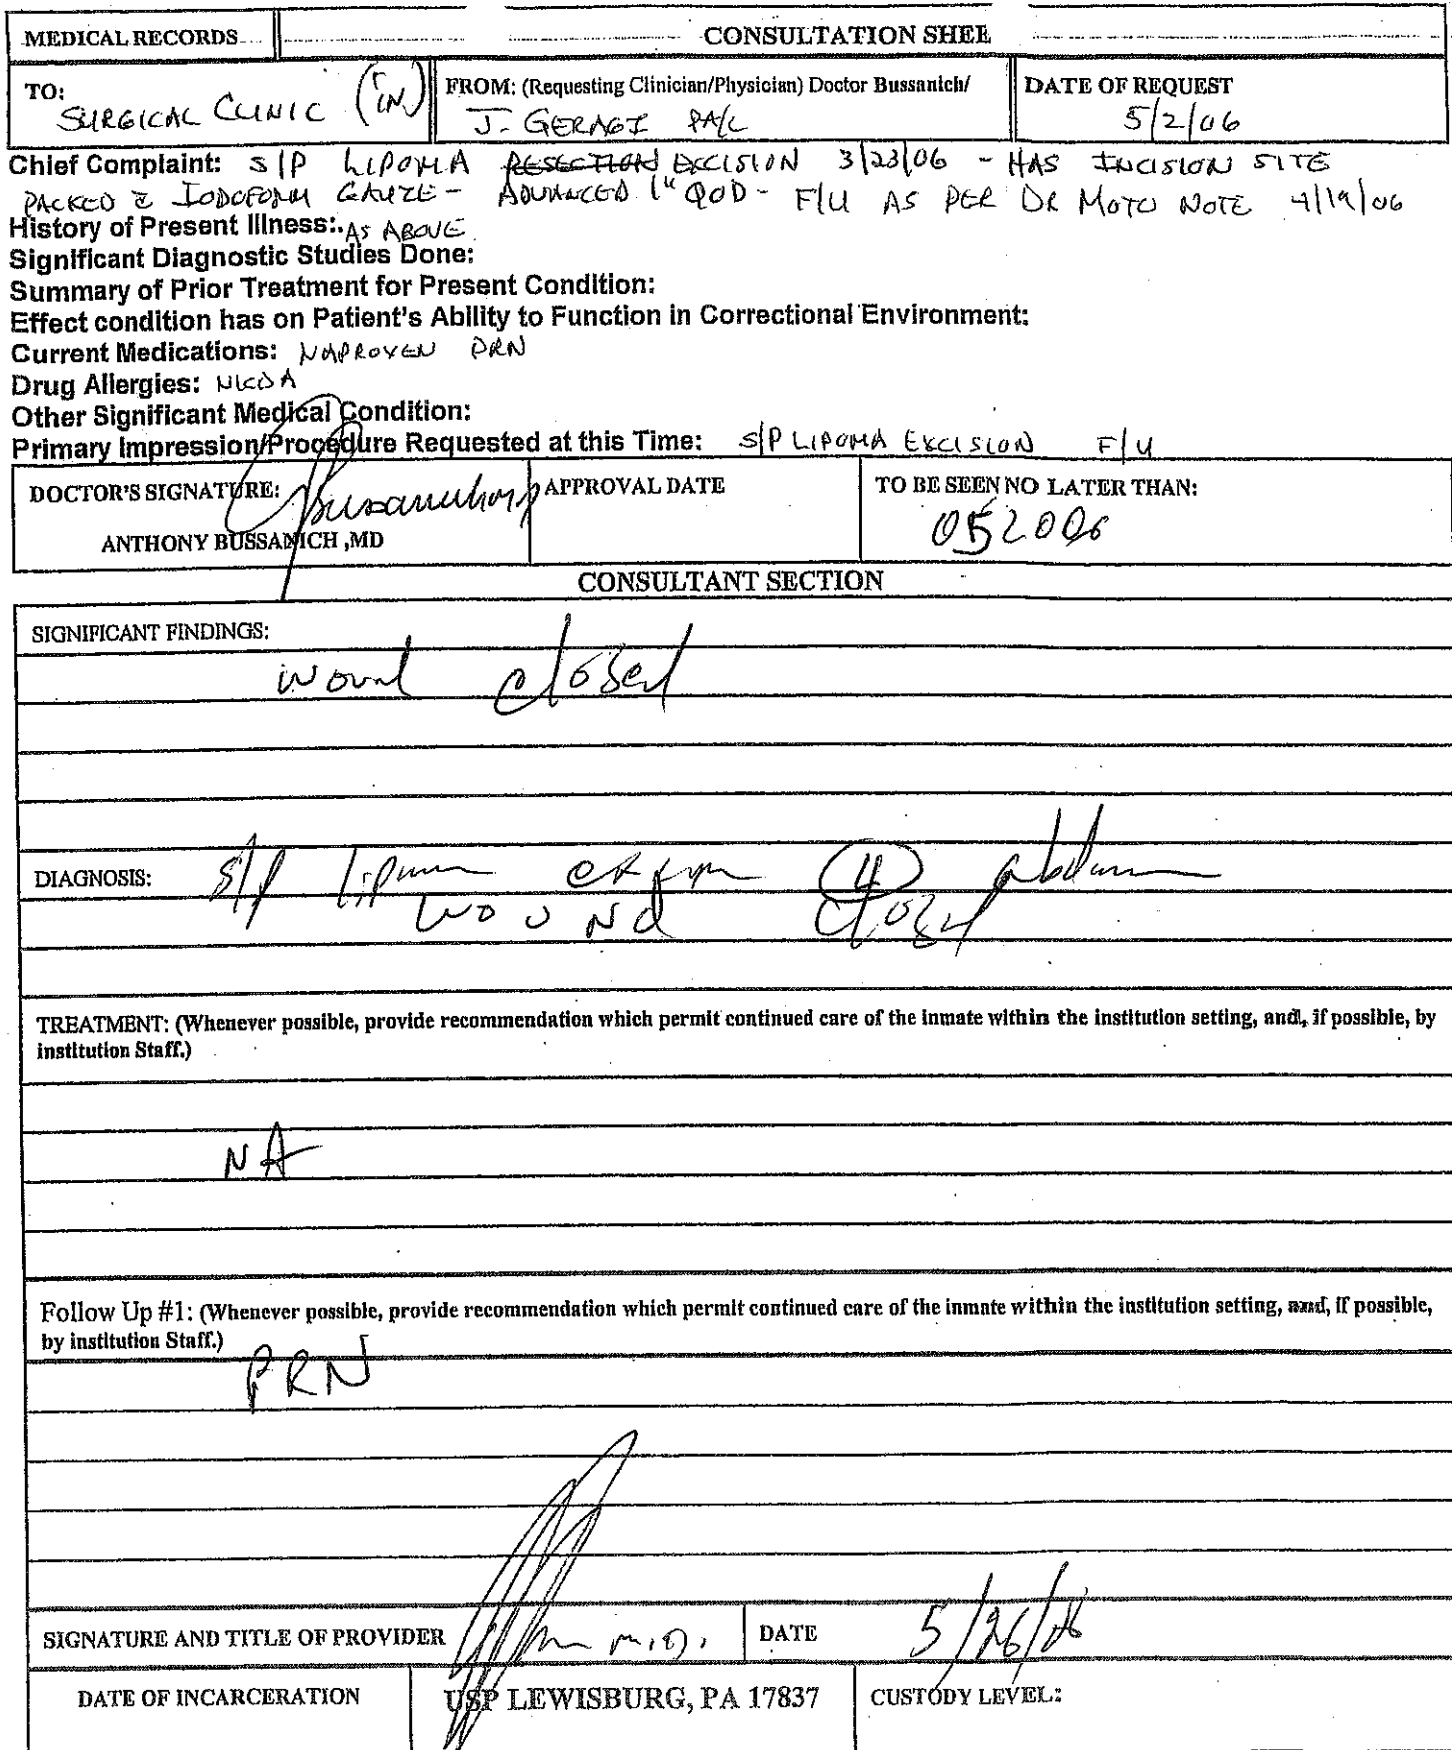 MEDICAL RECORDS CONSULTATION SHEE
TO: SURGICAL CLINIC (IN) FROM: (Requesting Clinician/Physician) Doctor Bussanich/ J. GERAGI PA/C DATE OF REQUEST 5/2/06
Chief Complaint: S/P LIPOMA RESECTION EXCISION 3/23/06 - HAS INCISION SITE
PACKED c̄ IODOFORM GAUZE - ADVANCED 1" QOD - F/U AS PER DR MOTO NOTE 4/19/06
History of Present Illness:. AS ABOVE
Significant Diagnostic Studies Done:
Summary of Prior Treatment for Present Condition:
Effect condition has on Patient's Ability to Function in Correctional Environment:
Current Medications: NAPROXEN PRN
Drug Allergies: NKDA
Other Significant Medical Condition:
Primary Impression/Procedure Requested at this Time: S/P LIPOMA EXCISION F/U
DOCTOR'S SIGNATURE: APPROVAL DATE TO BE SEEN NO LATER THAN:
052006
ANTHONY BUSSANICH ,MD
CONSULTANT SECTION
SIGNIFICANT FINDINGS:
wound closed
DIAGNOSIS: s/p lipoma abdomen
wound closed
TREATMENT: (Whenever possible, provide recommendation which permit continued care of the inmate within the institution setting, and, if possible, by
institution Staff.)
NA
Follow Up #1: (Whenever possible, provide recommendation which permit continued care of the inmate within the institution setting, and, if possible,
by institution Staff.)
PRN
SIGNATURE AND TITLE OF PROVIDER M.D. DATE 5/26/06
DATE OF INCARCERATION USP LEWISBURG, PA 17837 CUSTODY LEVEL: